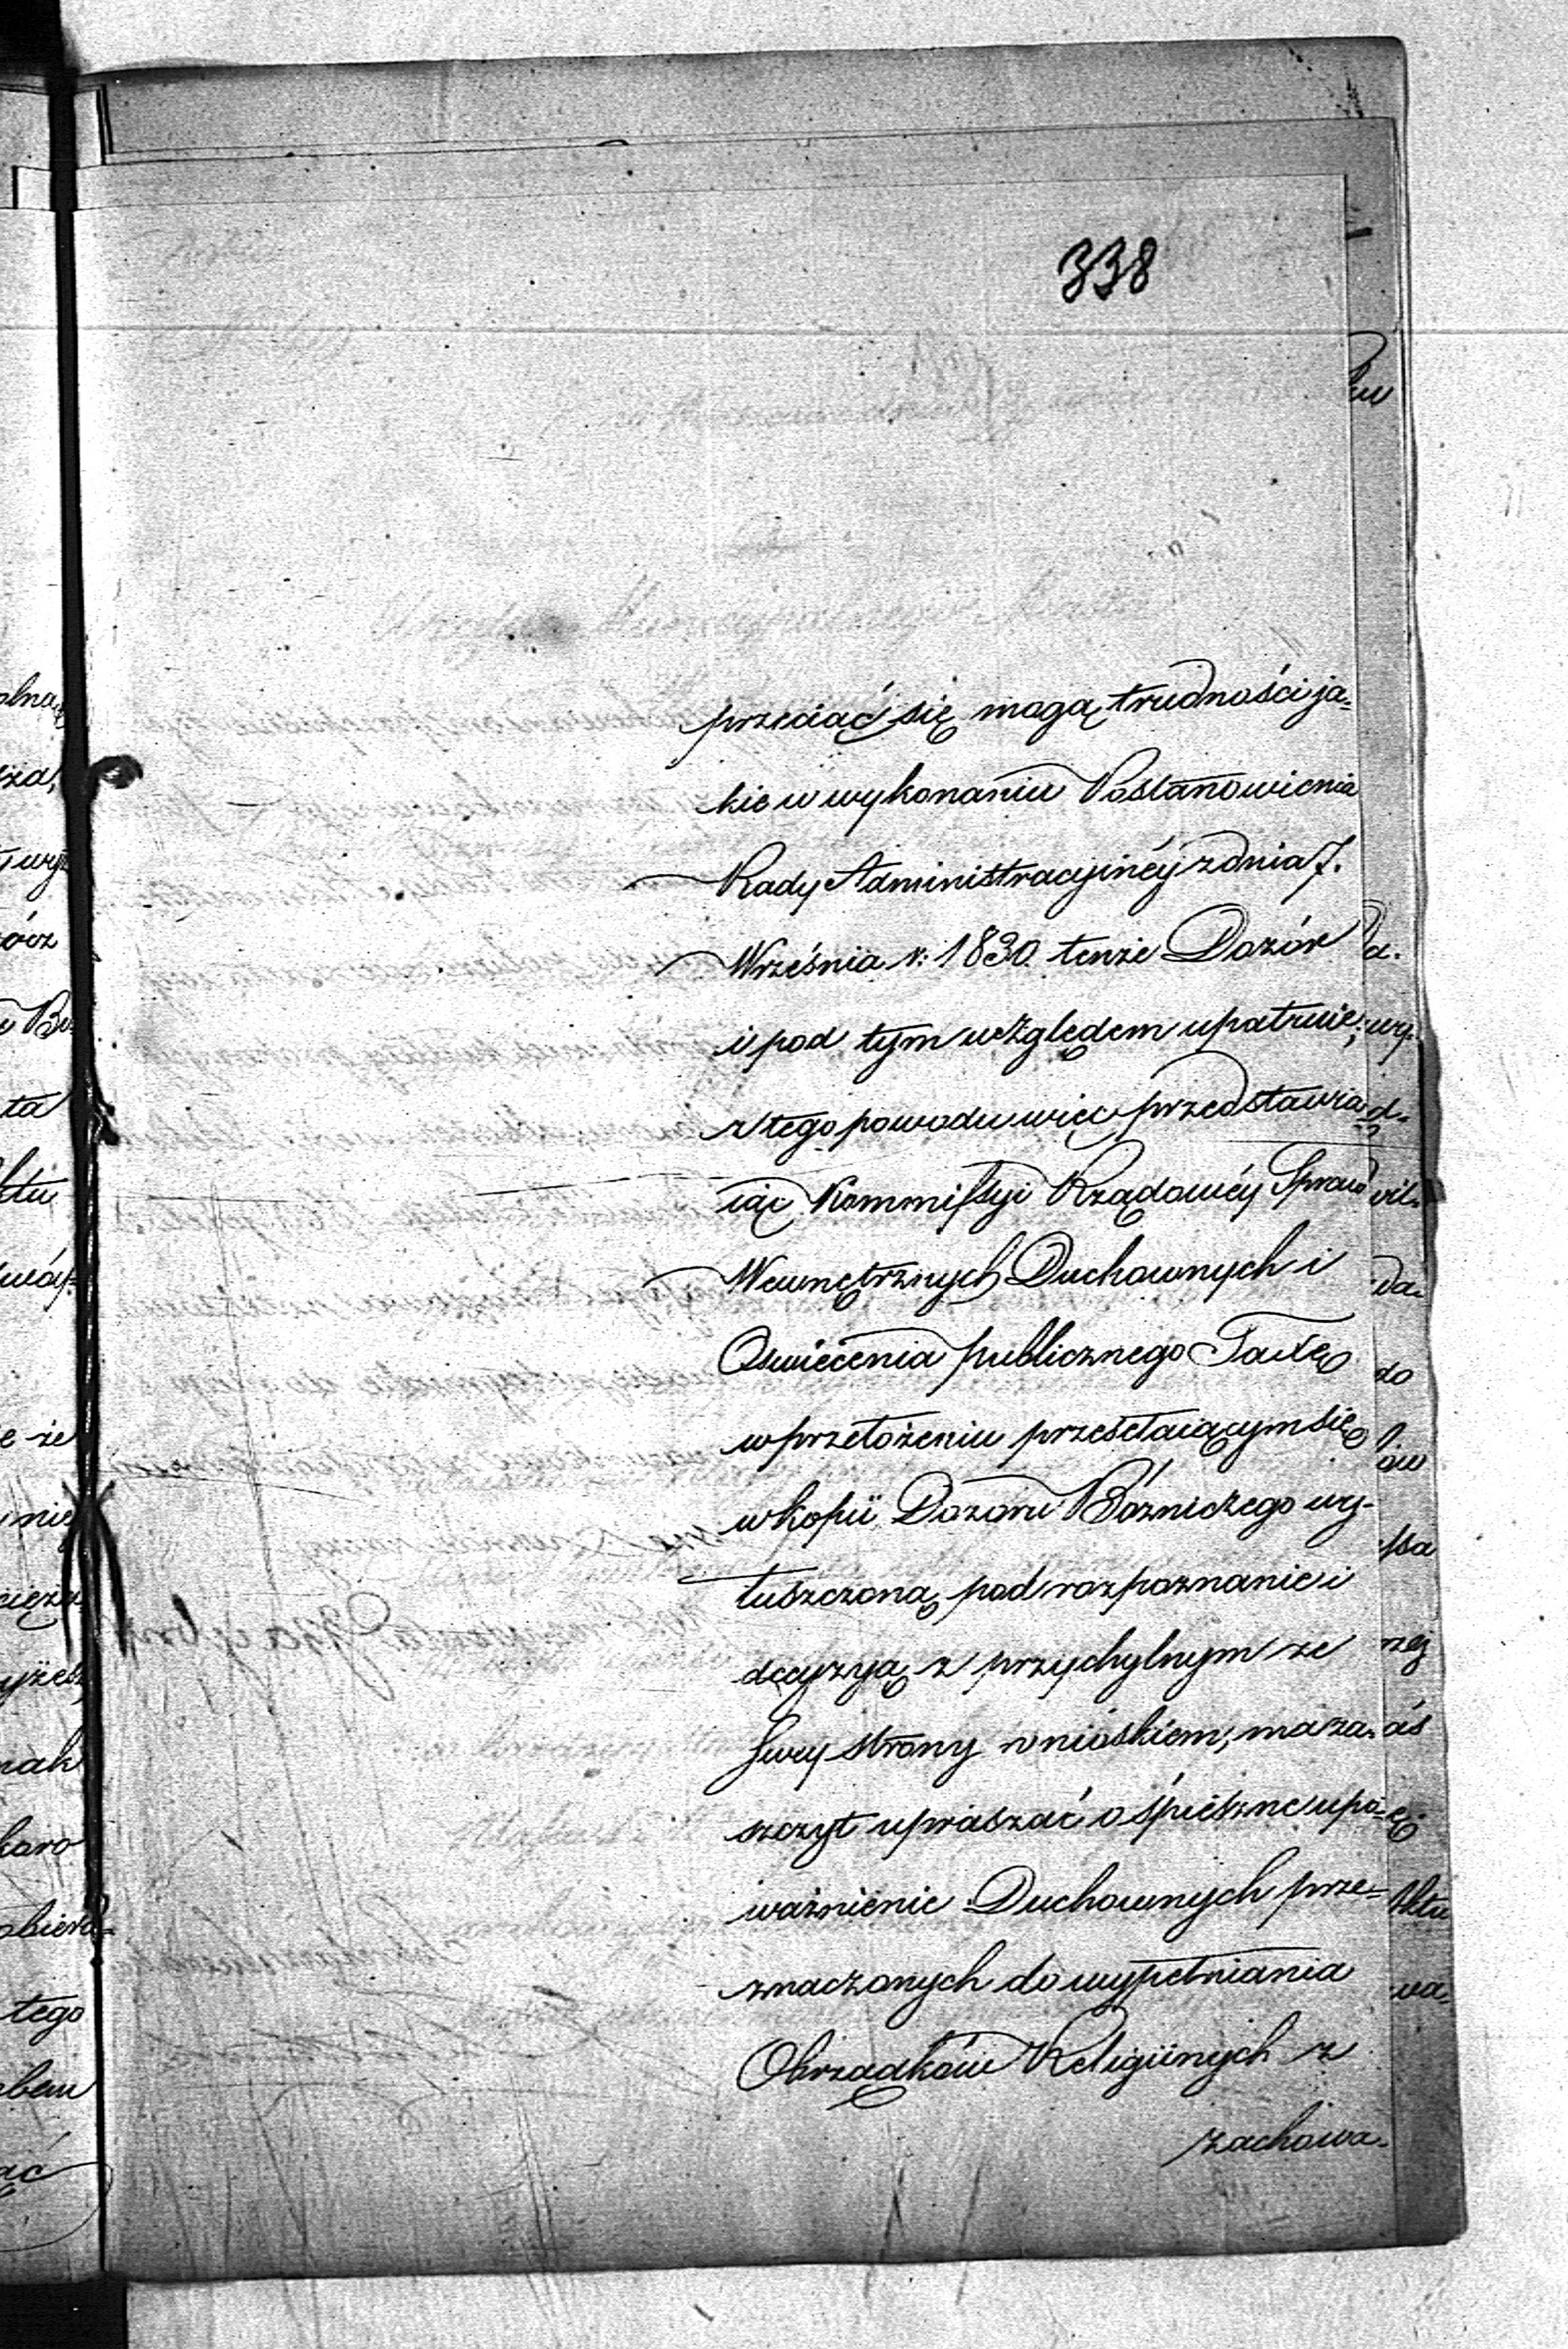 338
przeciąć się mogą trudności ja=
kie w wykonaniu Postanowienia
Rady Administracyinéy z dnia 7.
Września r: 1830. tenże Dozór
i pod tym względem upatruie;
z tego powodu więc przedstawia=
iąc Kommissyi Rządowéy Spraw
Wewnętrznych Duchownych i
Oswiecenia publicznego Taxę
w przełożeniu przesełaiącym się
w kopii Dozoru Bóżniczego wy-
łuszczoną pod rozpoznanie i
decyzyą z przychylnym ze
swey strony wnioskiem, ma za=
szczyt upraszać o śpieszne upo=
ważnienie Duchownych prze=
znaczonych do wypełniania
Obrządków Religiinych z
zachowa-